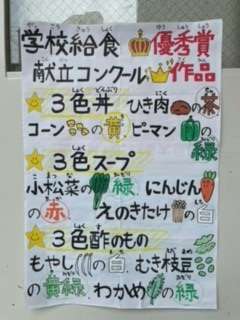 学校給食 優秀賞
献立コンクール 作品
3色丼 ひき肉の茶
コーンの黄 ピーマンの
緑
3色スープ
小松菜の緑 にんじん
の赤 えのきたけの白
3色酢のもの
もやしの白 むき枝豆
の黄緑 わかめの緑